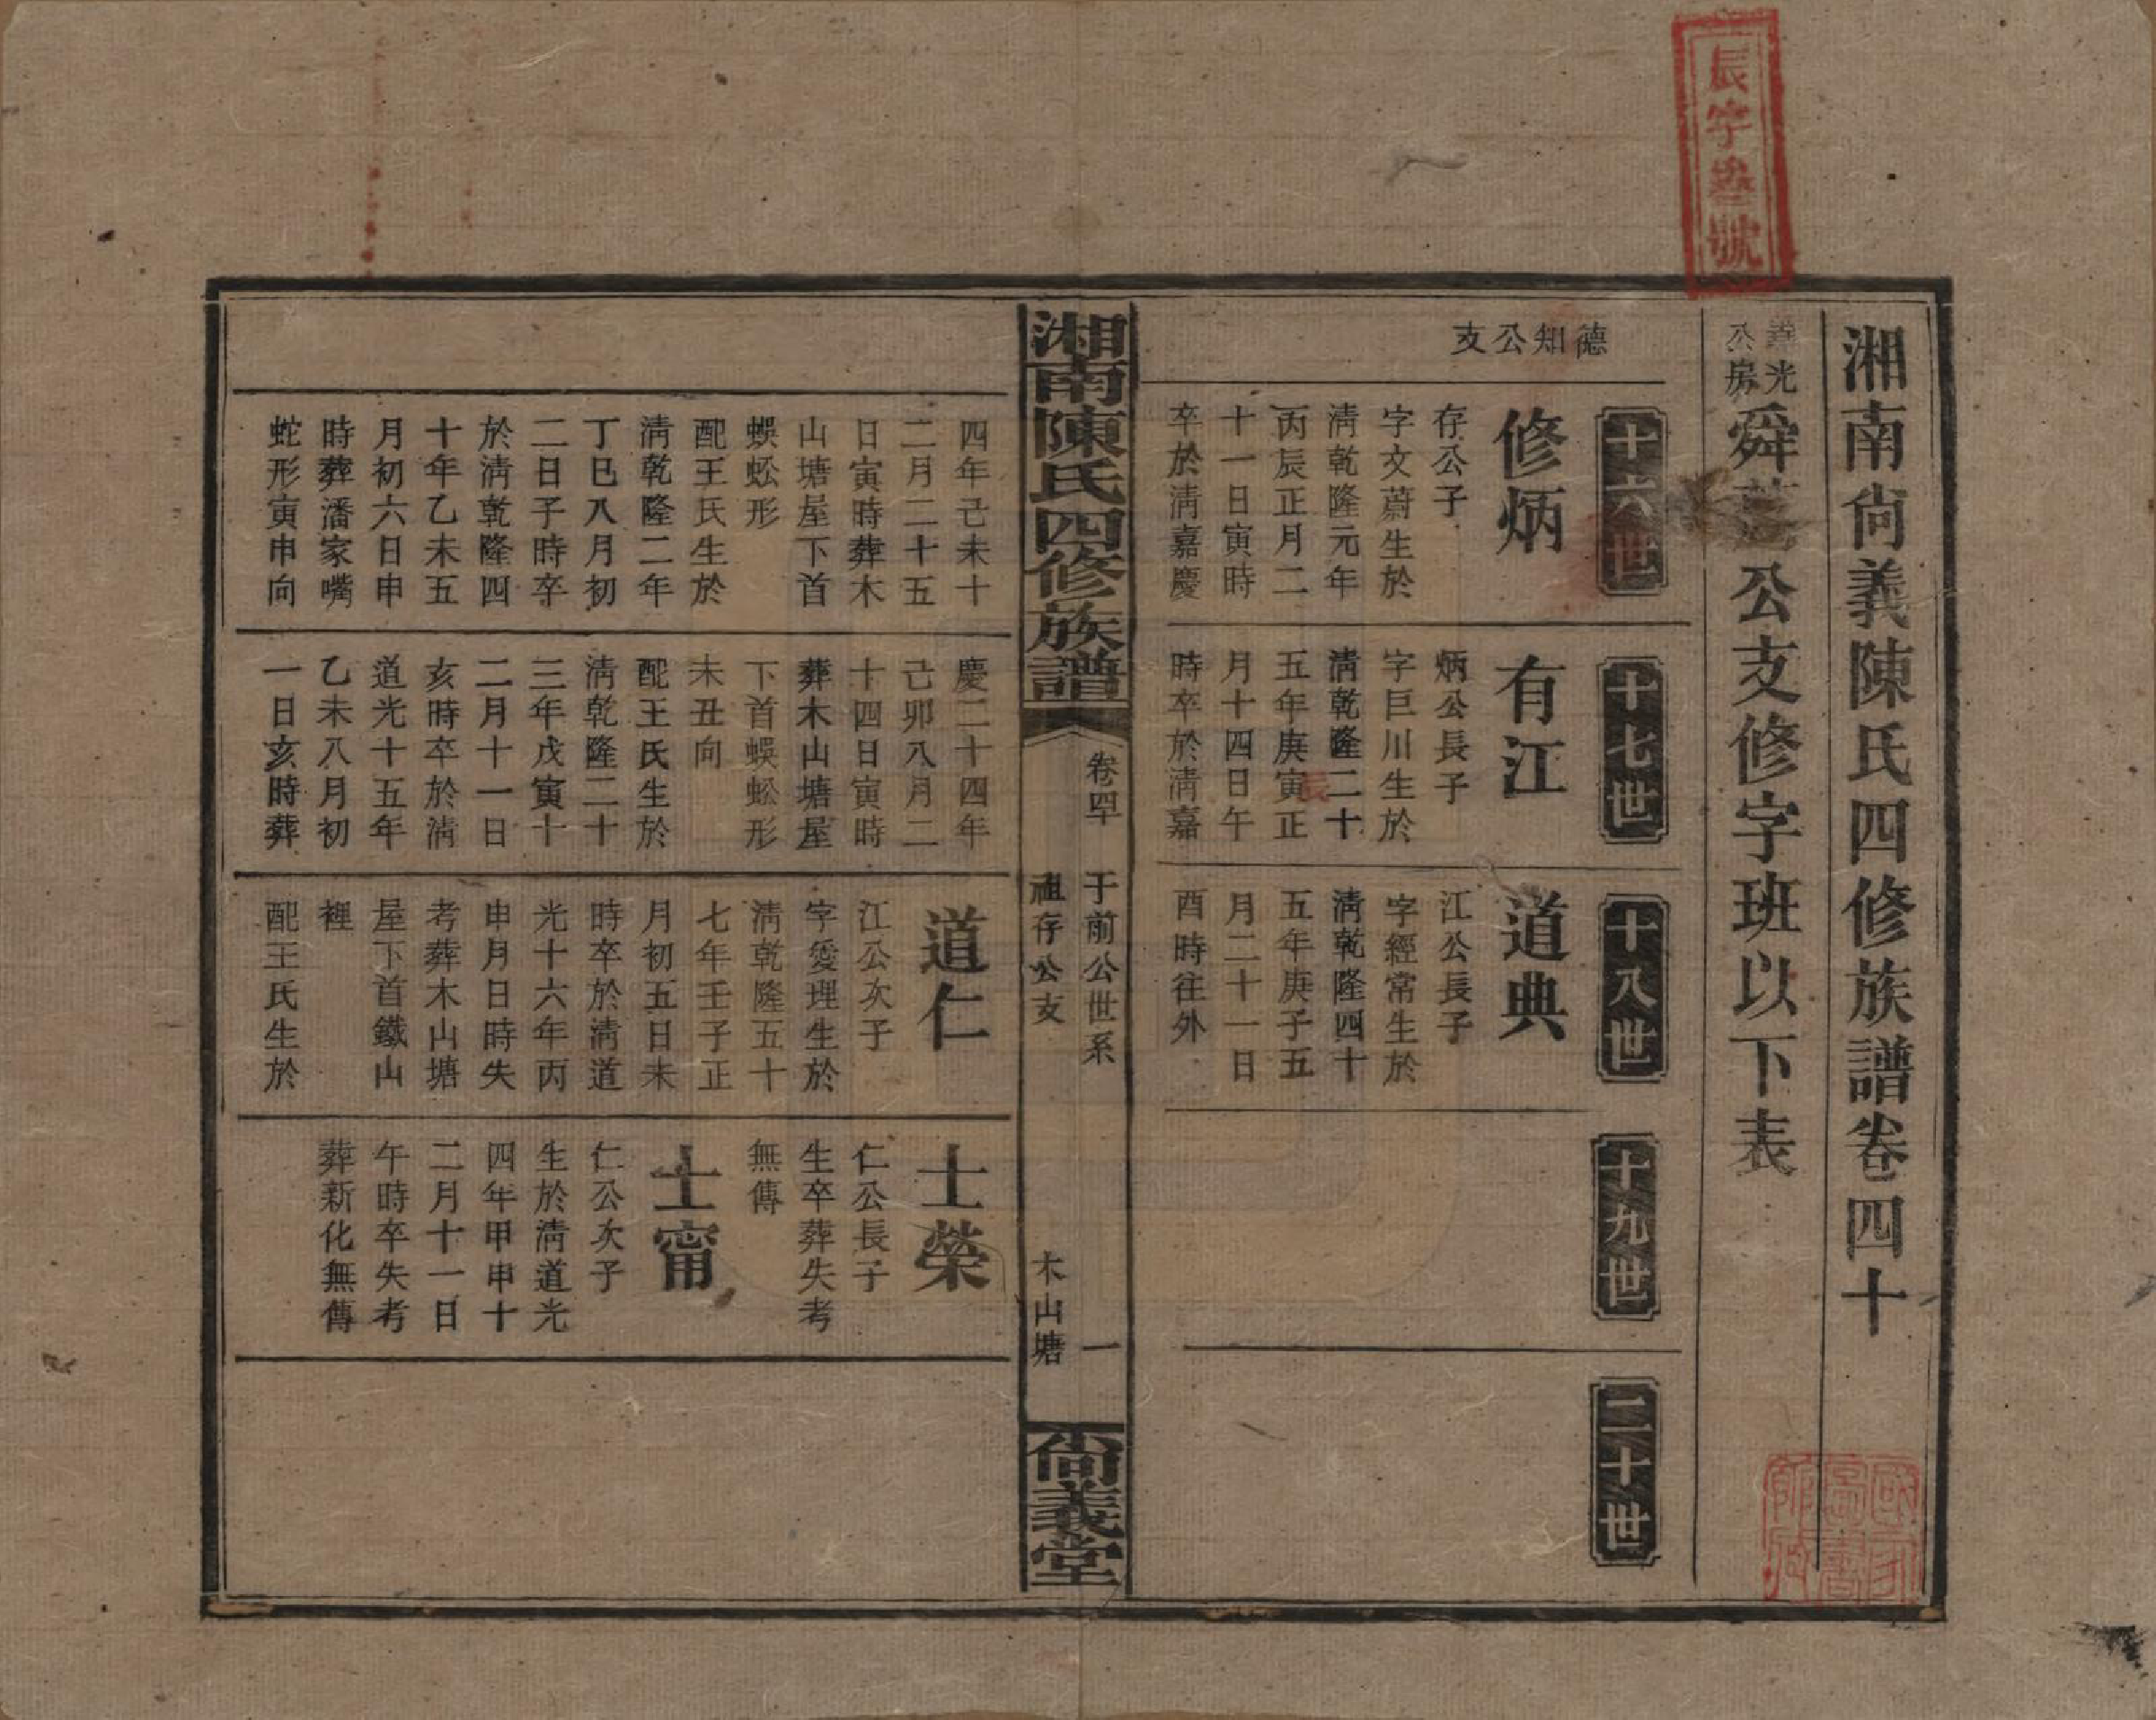 辰字叁號
湘南尙義陳氏四修族譜卷四十
光
公房
舜
公支修字班以下表
德知公支
十六世
修炳
存公子
字文蔚生於
淸乾隆元年
丙辰正月二
十一日寅時
卒於淸嘉慶
十七世
有江
炳公長子
字巨川生於
淸乾隆二十
五年庚寅正
辰
月十四日午
時卒於淸嘉
十八世
道典
江公長子
字經常生於
淸乾隆四十
五年庚子五
月二十一日
酉時往外
十九世
二十世
湘南陳氏四修族譜
卷四十
于前公世系
一
祖存公支
木山塘
尙義堂
四年己未十
二月二十五
日寅時葬木
山塘屋下首
蜈蚣形
配王氏生於
淸乾隆二年
丁巳八月初
二日子時卒
於淸乾隆四
十年乙未五
月初六日申
時葬潘家嘴
蛇形寅申向
慶二十四年
己卯八月二
十四日寅時
葬木山塘屋
下首蜈蚣形
未丑向
配王氏生於
淸乾隆二十
三年戊寅十
二月十一日
亥時卒於淸
道光十五年
乙未八月初
一日亥時葬
道仁
江公次子
字燮理生於
淸乾隆五十
七年壬子正
月初五日未
時卒於淸道
光十六年丙
申月日時失
考葬木山塘
屋下首鐵山
裡
配王氏生於
士榮
仁公長子
生卒葬失考
無傳
士甯
仁公次子
生於淸道光
四年甲申十
二月十一日
午時卒失考
葬新化無傳